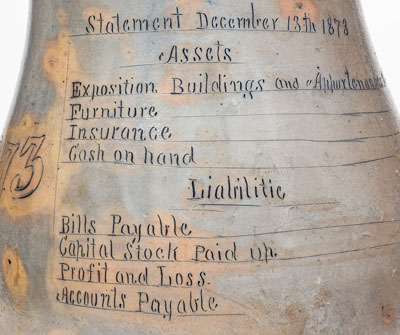 Statement December 13th 1878
Assets
Exposition, Buildings and Appurtenances
Furniture
Insurance
Cash on hand
73
Liabilitie
Bills Payable
Capital Stock Paid up.
Profit and Loss.
Accounts Payable